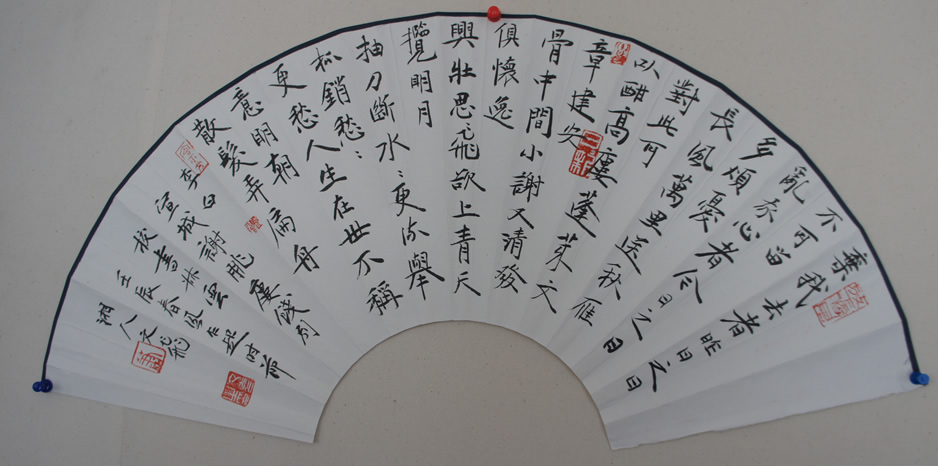 棄我去者昨日之日
不可留
亂我心者今日之日
多煩憂
長風萬里送秋雁
對此可
以酣高樓蓬萊文
章建安
骨中間小謝又清發
俱懷逸
興壯思飛欲上青天
攬明月
抽刀斷水〻更流舉
杯銷愁〻
更愁人生在世不稱
意明朝
散髮弄扁舟
李白
宣城謝朓樓餞別
校書叔雲
壬辰春
湘人文